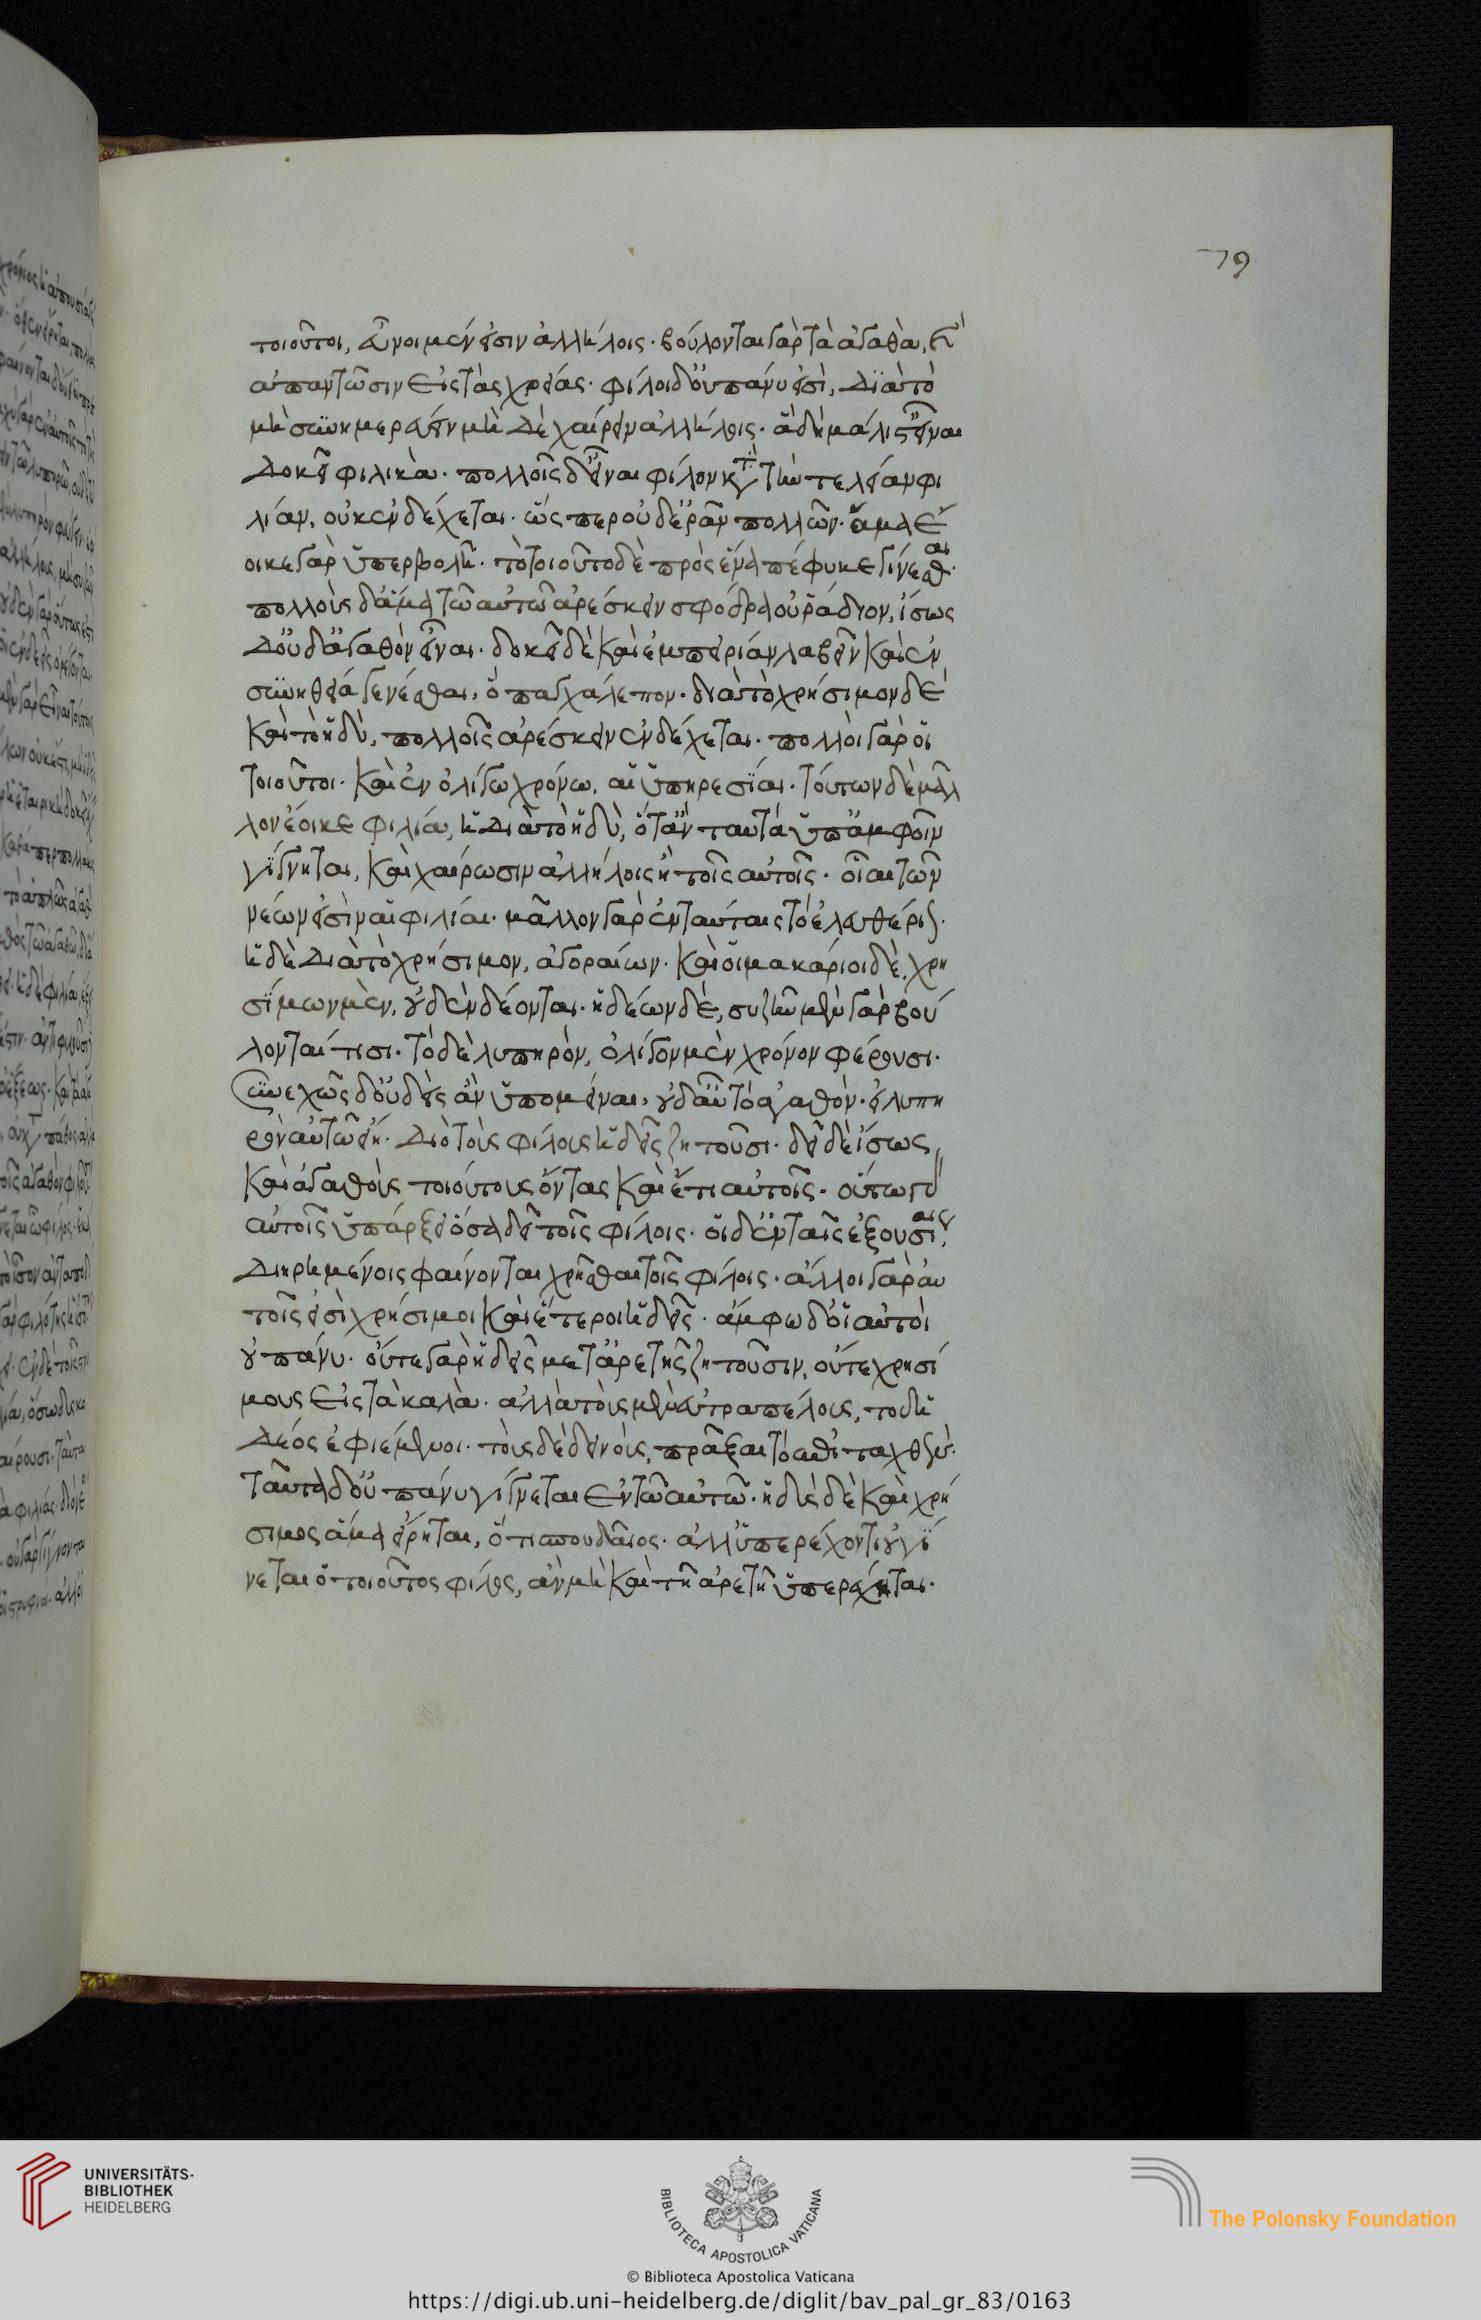 79
τοιοῦτοι, εὖνοι μέν εἰσιν ἀλλήλοις· βούλονται γὰρ τὰ ἀγαθὰ, καὶ
ἀπαντῶσιν εἰς τὰς χρείας· φίλοι δ' οὐ πάνυ εἰσὶ, διὰ τὸ
μὴ συνημερεύειν μὴ δὲ χαίρειν ἀλλήλοις· ἃ δὴ μάλιστ' εἶναι
δοκεῖ φιλικὰ· πολλοῖς δ' εἶναι φίλον κατὰ τὴν τελείαν φι
λίαν, οὐκ ἐνδέχεται· ὥσπερ οὐδ' ἐρᾶν πολλῶν ἅμα· ἔ
οικε γὰρ ὑπερβολῆ· τὸ τοιοῦτο δὲ πρὸς ἕνα πέφυκε γίνεσθαι·
πολλοὺς δ' ἅμα τῶ αὐτῶ ἀρέσκειν σφόδρα οὐ ῥάδιον, ἴσως
δ' οὐδ' ἀγαθὸν εἶναι· δοκεῖ δὲ καὶ ἐμπειρίαν λαβεῖν καὶ ἐν
συνηθεία γενέσθαι, ὃ παγχάλεπον· διὰ τὸ χρήσιμον δὲ
καὶ τὸ ἡδὺ, πολλοῖς ἀρέσκειν ἐνδέχεται· πολλοὶ γὰρ οἱ
τοιοῦτοι· καὶ ἐν ὀλίγω χρόνω, αἱ ὑπηρεσίαι· τούτων δὲ μᾶλ
λον ἔοικε φιλία, ἡ διὰ τὸ ἡδὺ, ὅταν ταυτὰ ὑπ' ἀμφοῖν
γίγνηται, καὶ χαίρωσιν ἀλλήλοις ἢ τοῖς αὐτοῖς· οἷαι τῶν
νέων εἰσὶν αἱ φιλίαι· μᾶλλον γὰρ ἐν ταύταις τὸ ἐλευθέριον·
ἡ δὲ διὰ τὸ χρήσιμον, ἀγοραίων· καὶ οἱ μακάριοι δὲ, χρη
σίμων μὲν, οὐδὲν δέονται· ἡδέων δὲ, συζῆν μὲν γὰρ βού
λονταί τισι· τὸ δὲ λυπηρὸν, ὀλίγον μὲν χρόνον φέρουσι·
συνεχῶς δ' οὐδεὶς ἂν ὑπομείναι, οὐδ' αὐτὸ τὸ ἀγαθὸν· εἰ λυπη
ρὸν αὐτῶ εἴη· διὸ τοὺς φίλους ἡδεῖς ζητοῦσι· δεῖ δὲ ἴσως
καὶ ἀγαθοὺς τοιούτους ὄντας καὶ ἔτι αὐτοῖς· οὕτω γὰρ
αὐτοῖς ὑπάρξει ὅσα δεῖ τοῖς φίλοις· οἱ δ' ἐν ταῖς ἐξουσίαις,
διηρημένοις φαίνονται χρῆσθαι τοῖς φίλοις· ἄλλοι γὰρ αὐ
τοῖς εἰσὶ χρήσιμοι καὶ ἕτεροι ἡδεῖς· ἄμφω δ' οἱ αὐτοὶ
οὐ πάνυ· οὔτε γὰρ ἡδεῖς μετ' ἀρετῆς ζητοῦσιν, οὔτε χρησί
μους εἰς τὰ καλὰ· ἀλλὰ τοὺς μὲν εὐτραπέλους, τοῦ ἡ
δέος ἐφιέμενοι· τοὺς δὲ δεινοὺς, πρᾶξαι τὸ ἐπιταχθέν·
ταῦτα δ' οὐ πάνυ γίγνεται ἐν τῶ αὐτῶ· ἡδὺς δὲ καὶ χρή
σιμος ἅμα εἴρηται, ὅτι σπουδαῖος· ἀλλ' ὑπερέχοντι οὐ γί
νεται ὁ τοιοῦτος φίλος, ἂν μὴ καὶ τῆ ἀρετῆ ὑπερέχηται·
UNIVERSITÄTS-
BIBLIOTHEK
HEIDELBERG
BIBLIOTECA APOSTOLICA VATICANA
© Biblioteca Apostolica Vaticana
The Polonsky Foundation
https://digi.ub.uni-heidelberg.de/diglit/bav_pal_gr_83/0163